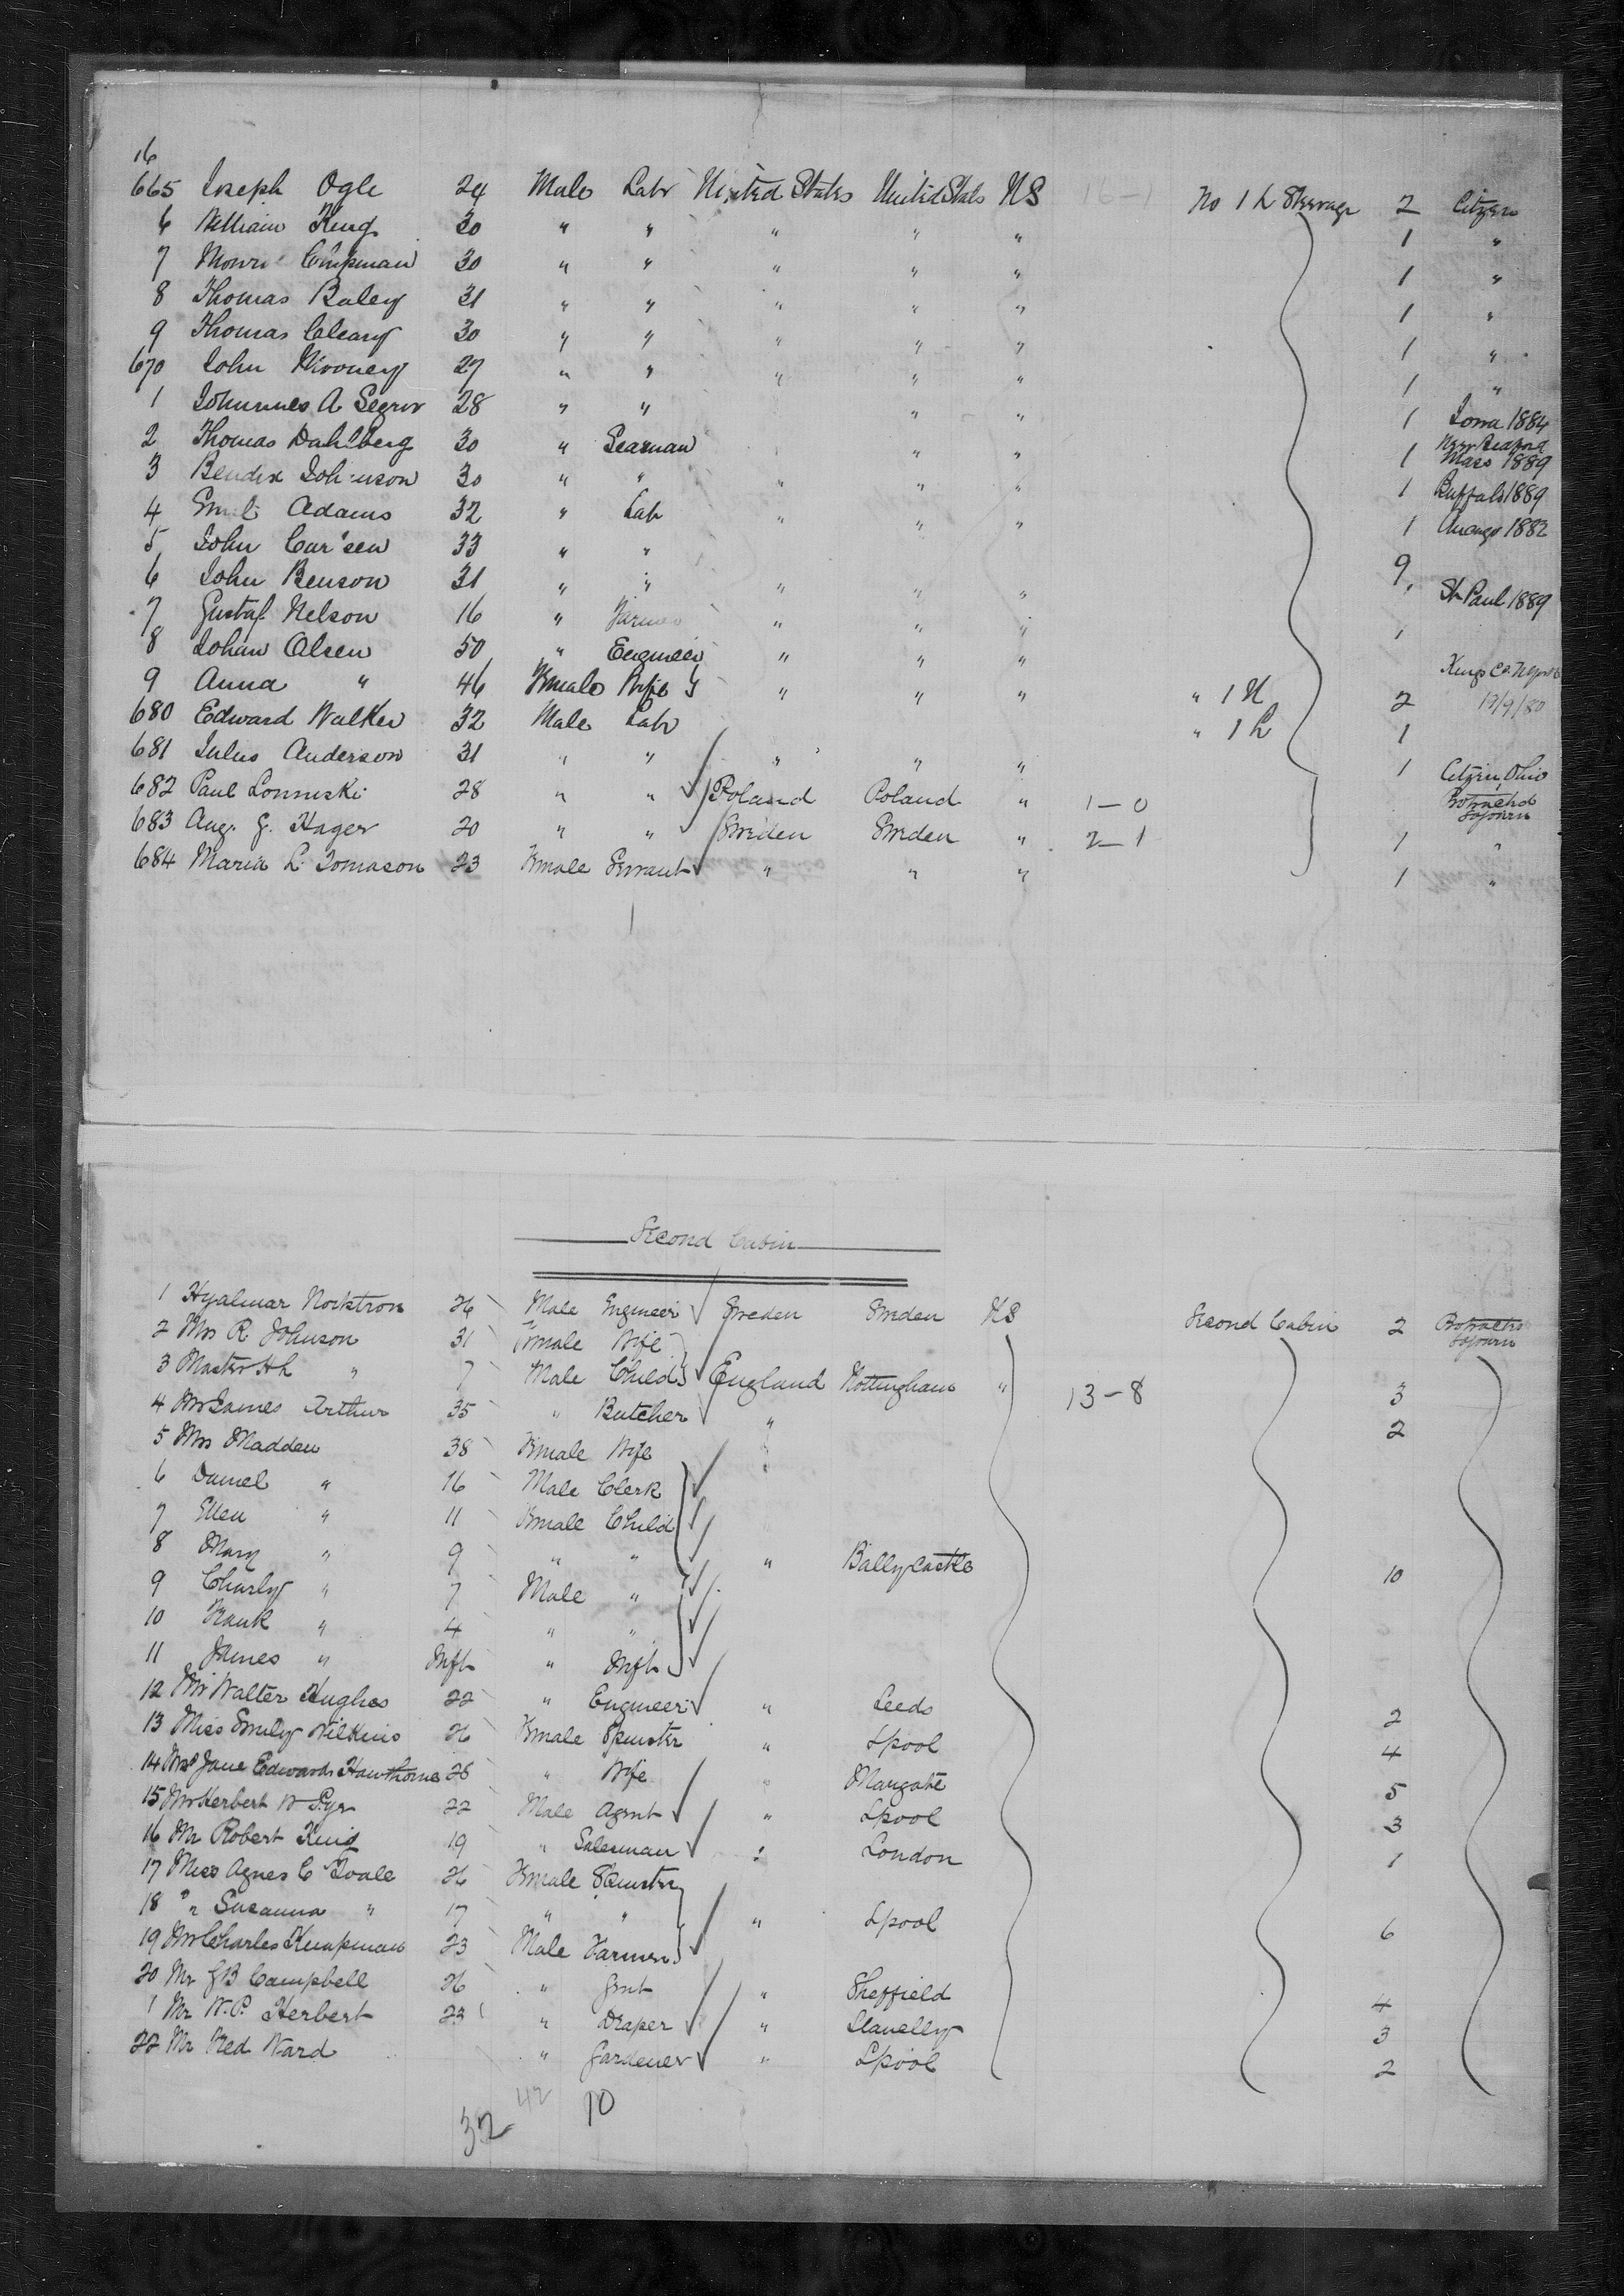 16
665 Joseph Ogle 24 Male Labr United States United States US 16-1 No 1 L Steerage 2 Citizen
6 William King 30 " " " " " 1 "
7 Monroe Chipman 30 " " " " " 1 "
8 Thomas Baley 31 " " " " " 1 "
9 Thomas Cleary 30 " " " " " 1 "
670 John Mooney 27 " " " " " 1 "
1 Johannes A 28 " " " " 1 Iowa 1884
2 Thomas Dahlberg 30 " Seaman " " 1 New Bedford Mass 1889
3 Bendix Johnson 30 " " " " " 1 Buffalo 1889
4 Emil Adams 32 " Labr " " " 1 Chicago 1882
5 John Carlsen 33 " " 9
6 John Benson 31 " " " " " 1 St Paul 1889
7 Gustaf Nelson 16 " Farmer " " " 1
8 Johan Olsen 50 " Engineer " " " Kings Co.
9 Anna " 46 Female Wife " " " " 1 U 2 12/9/80
680 Edward Walker 32 Male Labr " 1 L 1
681 Julus Anderson 31 " " " " " 1 Citizen Ohio
682 Paul 28 " " Poland Poland " 1-0 Protracted Sojourn
683 Aug. G. Hager 20 " " Sweden Sweden " 2-1 1 "
684 Maria L. Tomason 23 Female Servant " " " 1 "
Second Cabin
1 Hyalmar Norkstrom 26 Male Engineer Sweden Sweden US Second Cabin 2 Protracted Sojourn
2 Mrs R. Johnson 31 Female Wife
3 Master " 7 Male Child England Nottingham " 13-8 3
4 Mr James Arthur 35 " Butcher " 2
5 Mrs Madden 38 Female Wife "
6 Daniel " 16 Male Clerk
7 Ellen " 11 Female Child
8 Mary " 9 " " " Ballycastle 10
9 Charly " 7 Male "
10 Frank " 4 " "
11 James " Inft " Inft
12 Mr Walter Hughes 22 " Engineer " Leeds 2
13 Miss Emily Wilkins 26 Female Spinster " Lpool 4
14 Mrs Jane Edwards Hawthorne 26 " Wife " Margate 5
15 Mr Herbert W 22 Male Agent " Lpool 3
16 Mr Robert King 19 " Salesman " London 1
17 Miss Agnes C Toale 26 Female Spinster
18 " Susanna " 17 " " " Lpool 6
19 Mr Charles Knapman 23 Male Farmer
20 Mr G B Campbell 26 " Gent " Sheffield 4
1 Mr W. P. Herbert 23 " Draper " Llanelly 3
22 Mr Fred Ward " Gardener " Lpool 2
42 10
32